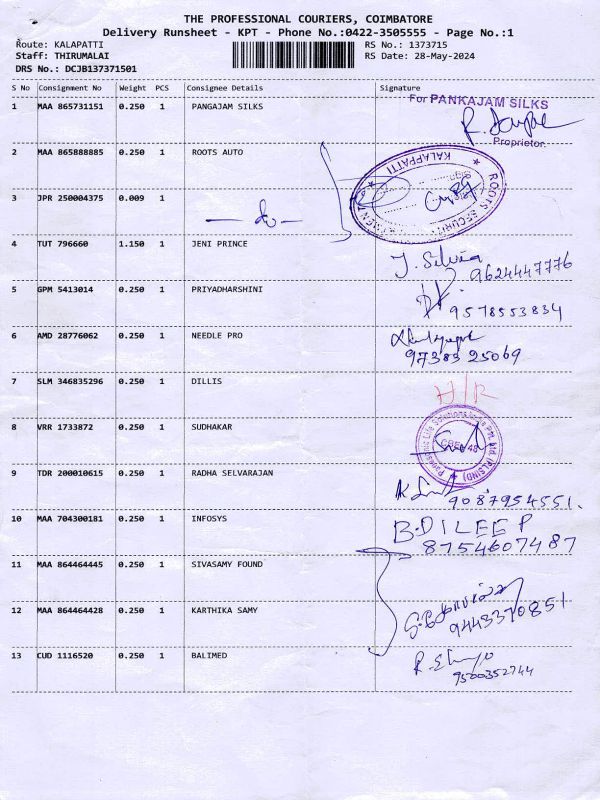 THE PROFESSIONAL COURIERS, COIMBATORE
Delivery Runsheet - KPT - Phone No.:0422-3505555 - Page No.:1
Route: KALAPATTI RS No.: 1373715
Staff: THIRUMALAI RS Date: 28-May-2024
DRS No.: DCJB137371501
S No Consignment No Weight PCS Consignee Details Signature
1 MAA 865731151 0.250 1 PANGAJAM SILKS For PANKAJAM SILKS
Proprietor.
2 MAA 865888885 0.250 1 ROOTS AUTO
ROOTS SECURITY KALAPPATTI
3 JPR 250004375 0.009 1 — do —
4 TUT 796660 1.150 1 JENI PRINCE J. Silvia
9624447776
5 GPM 5413014 0.250 1 PRIYADHARSHINI
9578553834
6 AMD 28776062 0.250 1 NEEDLE PRO
97389 25069
7 SLM 346835296 0.250 1 DILLIS H/R
8 VRR 1733872 0.250 1 SUDHAKAR
Panasonic Life Solutions India Pvt. Ltd. (PLSIND)
9 TDR 200010615 0.250 1 RADHA SELVARAJAN
9087954551.
10 MAA 704300181 0.250 1 INFOSYS B.DILEEP
8754607487
11 MAA 864464445 0.250 1 SIVASAMY FOUND
12 MAA 864464428 0.250 1 KARTHIKA SAMY
9443370851
13 CUD 1116520 0.250 1 BALIMED
9500352744